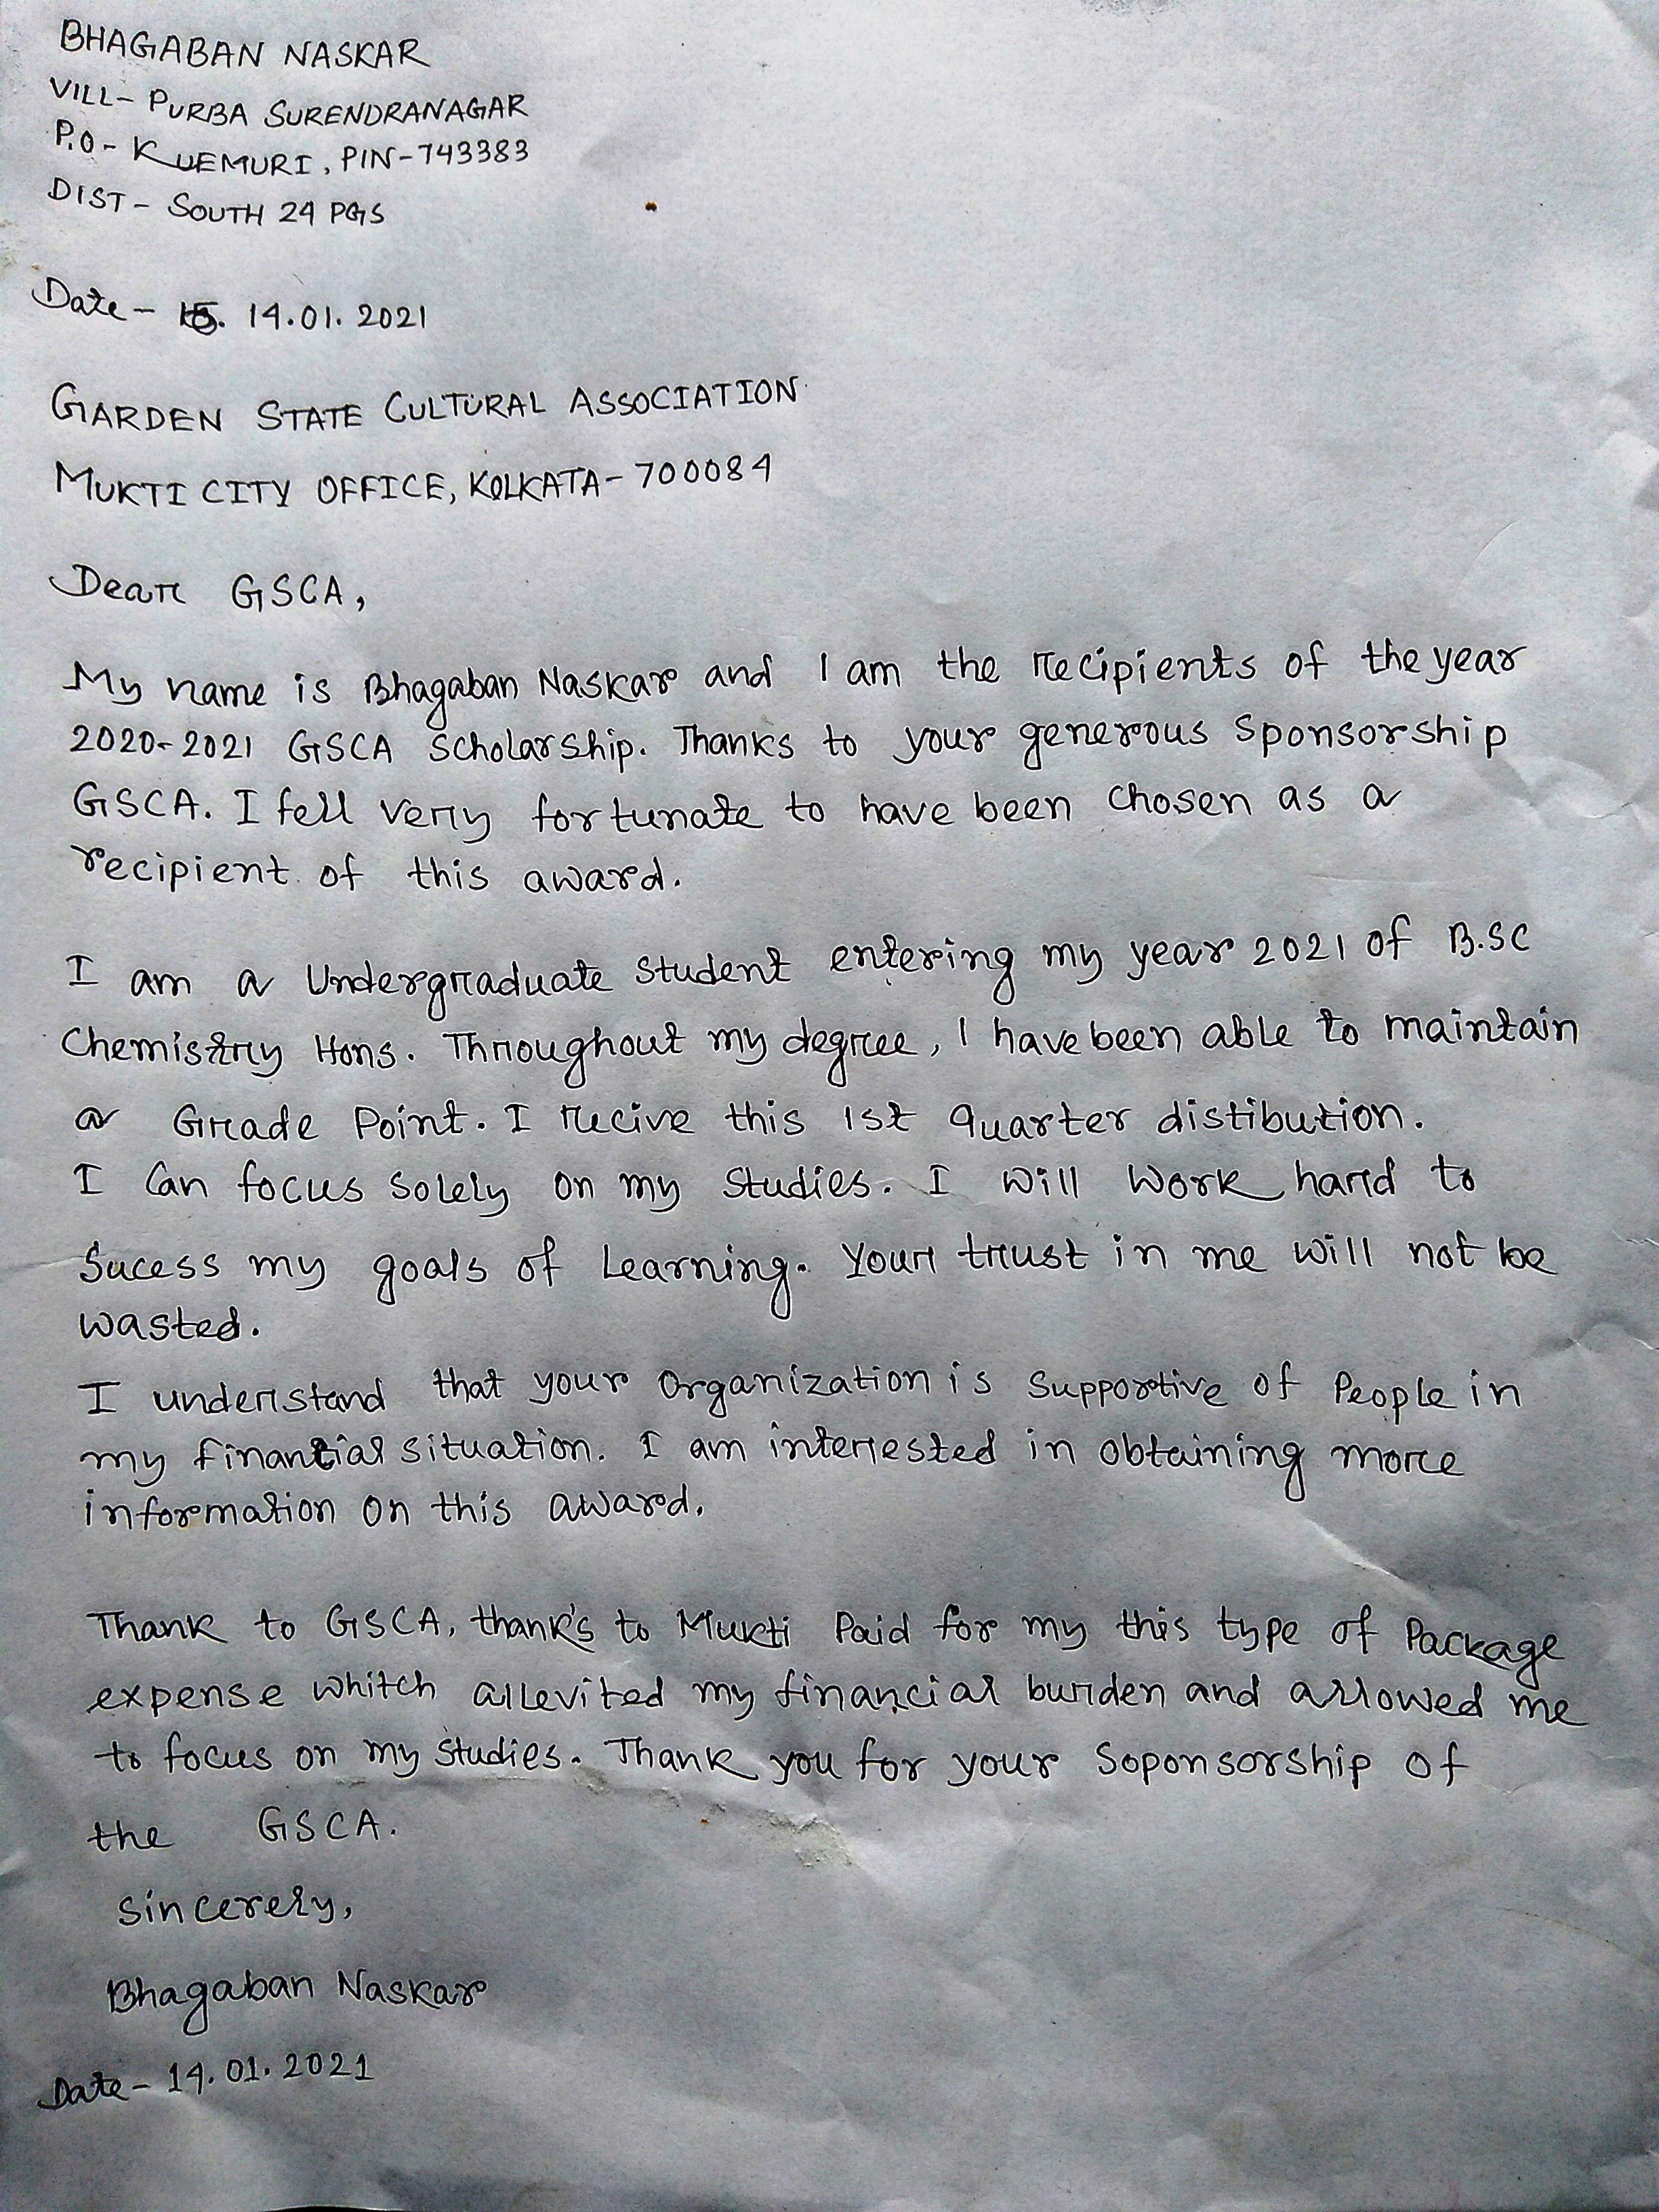 BHAGABAN NASKAR
VILL- PURBA SURENDRANAGAR
P.O- KUEMURI, PIN-743383
DIST- SOUTH 24 PGS
Date- 14.01.2021
GARDEN STATE CULTURAL ASSOCIATION
MUKTI CITY OFFICE, KOLKATA-700084
Dear GSCA,
My name is Bhagaban Naskar and I am the recipients of the year
2020-2021 GSCA Scholarship. Thanks to your generous Sponsorship
GSCA. I fell very fortunate to have been chosen as a
recipient of this award.
I am a Undergraduate student entering my year 2021 of B.SC
Chemistry Hons. Throughout my degree, I have been able to maintain
a Grade Point. I recive this 1st quarter distibution.
I can focus solely on my studies. I will work hard to
Sucess my goals of Learning. Your trust in me will not be
wasted.
I understand that your organization is supportive of People in
my financial situation. I am interested in obtaining more
information on this award.
Thank to GSCA, thank's to Mukti Paid for my this type of Package
expense whitch allevited my financial burden and allowed me
to focus on my studies. Thank you for your Soponsorship of
the GSCA.
Sincerely,
Bhagaban Naskar
Date- 14.01.2021